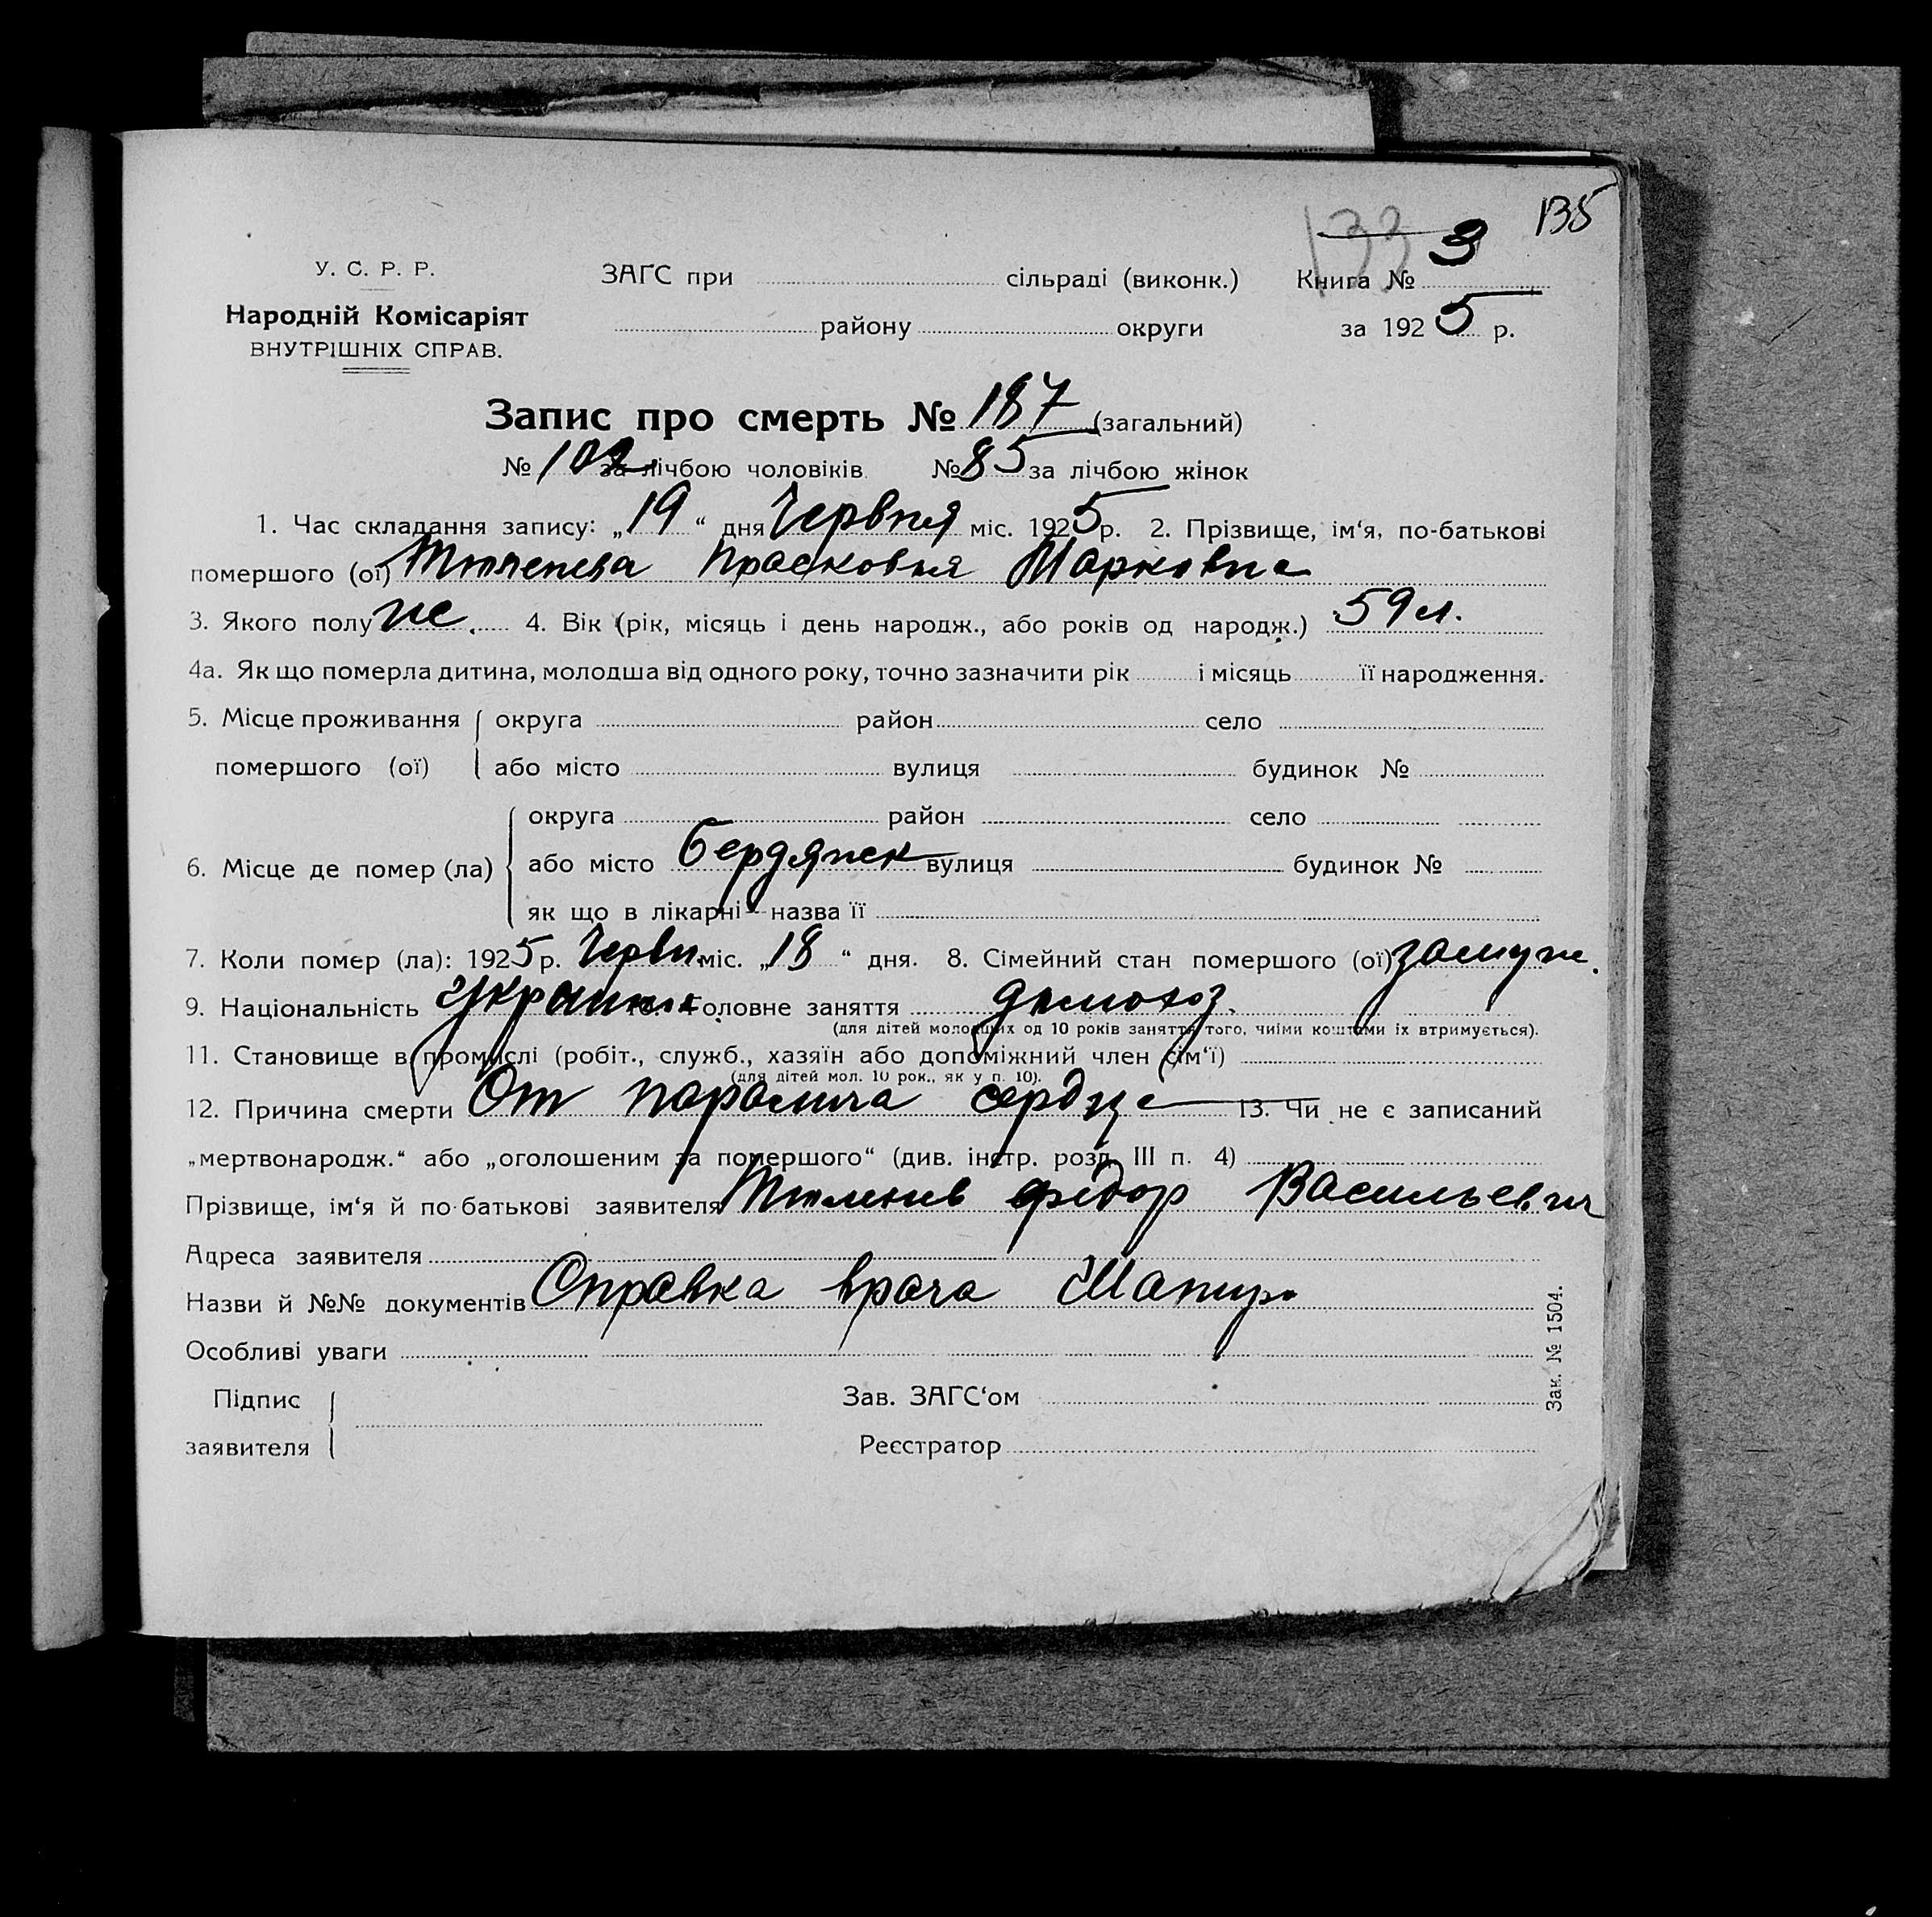 133 3 135
У. С. Р. Р. ЗАГС при сільраді (виконк.) Книга №
Народній Комісаріят району округи за 1925 р.
ВНУТРІШНІХ СПРАВ.
Запис про смерть № 187 (загальний)
№ 102 за лічбою чоловіків. № 85 за лічбою жінок
1. Час складання запису: „19“ дня Червня міс. 1925 р. 2. Прізвище, ім‘я, по-батькові
помершого (ої) Прасковья Марковна
3. Якого полу ж. 4. Вік (рік, місяць і день народж., або років од народж.) 59 л.
4а. Як що померла дитина, молодша від одного року, точно зазначити рік і місяць її народження.
5. Місце проживання округа район село
помершого (ої) або місто вулиця будинок №
округа район село
6. Місце де помер (ла) або місто Бердянск вулиця будинок №
як що в лікарні – назва її
7. Коли помер (ла): 1925 р. Червн. міс. „18“ дня. 8. Сімейний стан помершого (ої) замуж.
9. Національність 10. Головне заняття домохоз.
(для дітей молодших од 10 років заняття того, чиїми коштами їх втримується).
11. Становище в промислі (робіт., служб., хазяїн або допоміжний член сім‘ї)
(для дітей мол. 10 рок., як у п. 10).
12. Причина смерти От паралича сердца 13. Чи не є записаний
„мертвонародж.“ або „оголошеним за помершого“ (див. інстр. розд. III п. 4)
Прізвище, ім‘я й по-батькові заявителя Федор Васильевич
Адреса заявителя
Назви й №№ документів Справка врача
Особливі уваги
Підпис Зав. ЗАГС‘ом
заявителя Реєстратор
Зак. № 1504.